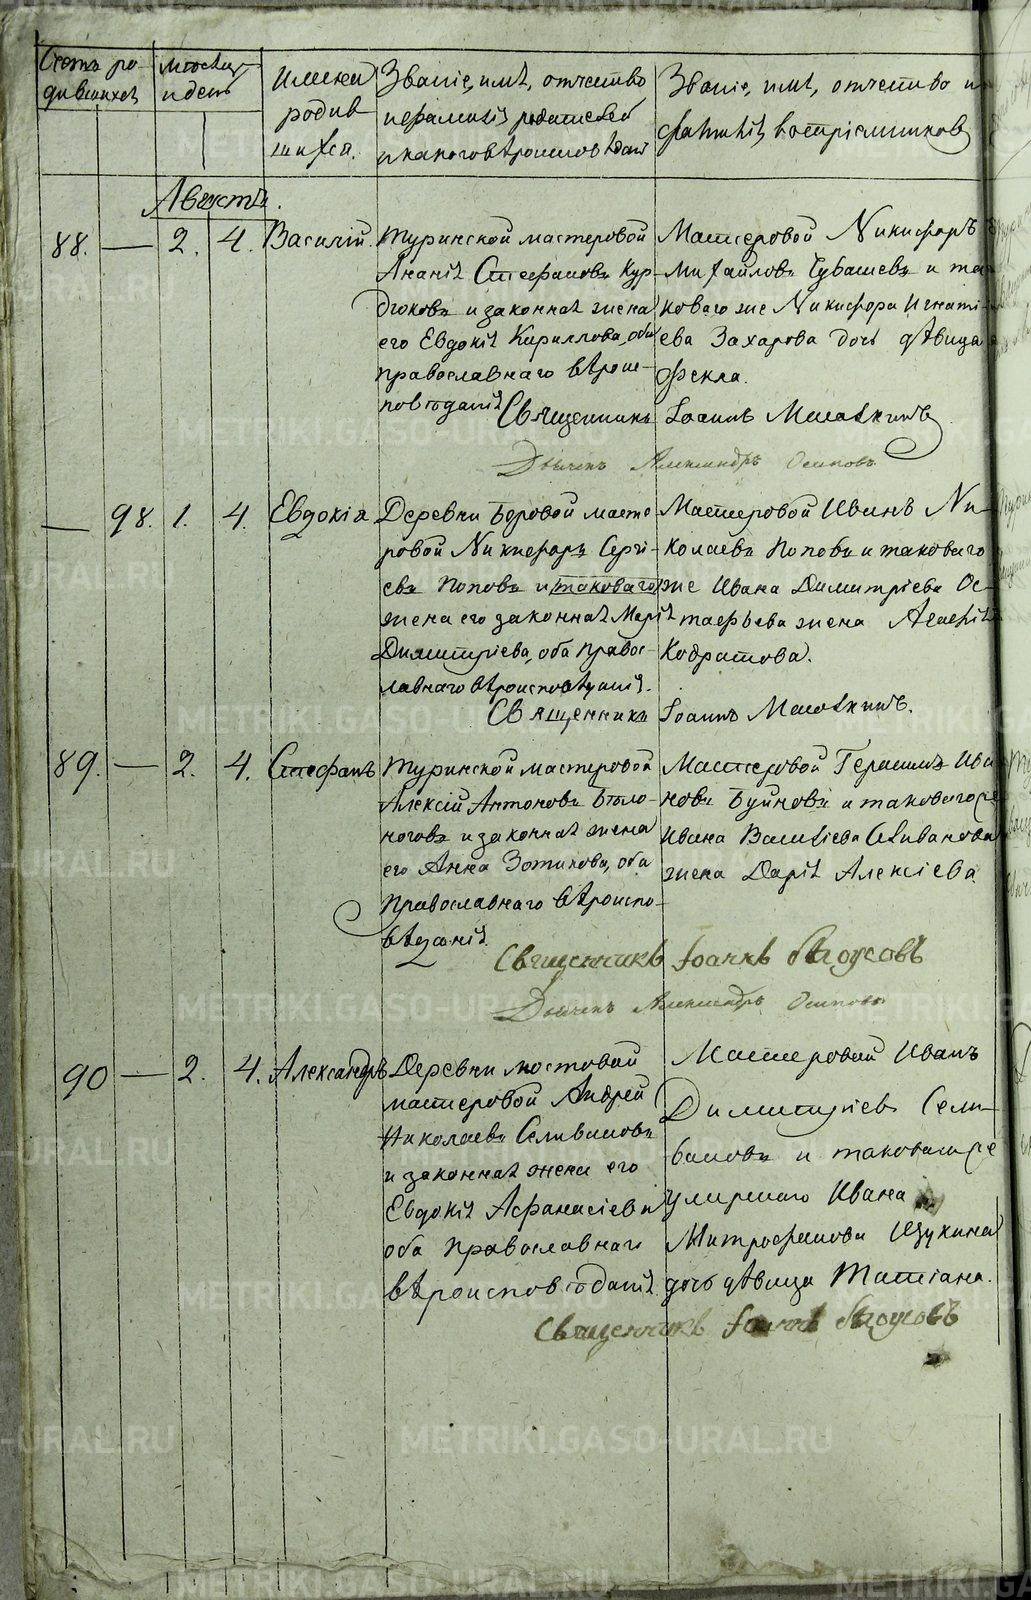 Счетъ ро-
дившихся
Месяцъ
и день
Имена
родив
шихся.
Званіе, имя, отчество
и фамилія родителей
и какого вѣроисповѣданія
Званіе, имя, отчество и
фамилія воспріемниковъ
Августъ.
88. — 2. 4. Василій.
Туринской мастеровой
Ананій Стефановъ Кур-
дюковъ и законная жена
его Евдокія Кириллова, оба
православнаго вѣроис-
повѣданія
Мастеровой Никифоръ
Михайловъ Чубашевъ и та-
коваго же Никифора Игнаті-
ева Захарова дочь дѣвица
Фекла.
Священникъ Іоаннъ
Дьячекъ Александръ Осиповъ
— 98. 1. 4. Евдокія
Деревни Боровой масте
ровой Никифоръ Сергі-
евъ Поповъ и таковаго
жена его законная Марія
Димитріева, оба правос-
лавнаго вѣроисповѣданія.
Мастеровой Иванъ Ни-
колаевъ Поповъ и таковаго
же Ивана Димитріева Ос-
тафьева жена Агафія
Кодратова.
Священникъ Іоаннъ
89. — 2. 4. Стефанъ
Туринской мастеровой
Алексій Антоновъ Бѣло-
ноговъ и законная жена
его Анна Зотикова, оба
Православнаго вѣроиспо-
вѣданія
Мастеровой Герасимъ Ива
новъ Буйновъ и таковаго же
Ивана Василіева Селиванова
жена Дарія Алексіева.
Священникъ Іоаннъ
Дьячекъ Александръ Осиповъ
90 — 2. 4. Александръ
Деревни Мостовой
мастеровой Андрей
Николаевъ Селивановъ
и законная жена его
Евдокія Афанасіева
оба Православнаго
вѣроисповѣданія
Мастеровой Иванъ
Димитріевъ Сели-
вановъ и таковаго же
умершаго Ивана
Митрофанова Щукина
дочь дѣвица Татіана.
Священникъ Іоаннъ
METRIKI.GASO-URAL.RU